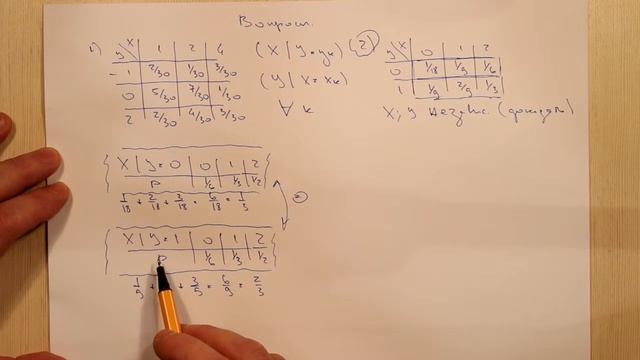 Вопросы.
1) y \ x | 1 | 2 | 4
-1 | 2/30 | 1/30 | 3/30
0 | 5/30 | 7/30 | 1/30
2 | 2/30 | 4/30 | 5/30
(X | Y = yk)
(Y | X = xk)
∀ k
2) y \ x | 0 | 1 | 2
0 | 1/18 | 1/9 | 1/6
1 | 1/9 | 2/9 | 1/3
X, Y незав.
X | Y = 0 | 0 | 1 | 2
P | 1/6 | 1/3 | 1/2
1/18 + 2/18 + 3/18 = 6/18 = 1/3
X | Y = 1 | 0 | 1 | 2
P | 1/6 | 1/3 | 1/2
1/9 + + 3/9 = 6/9 = 2/3